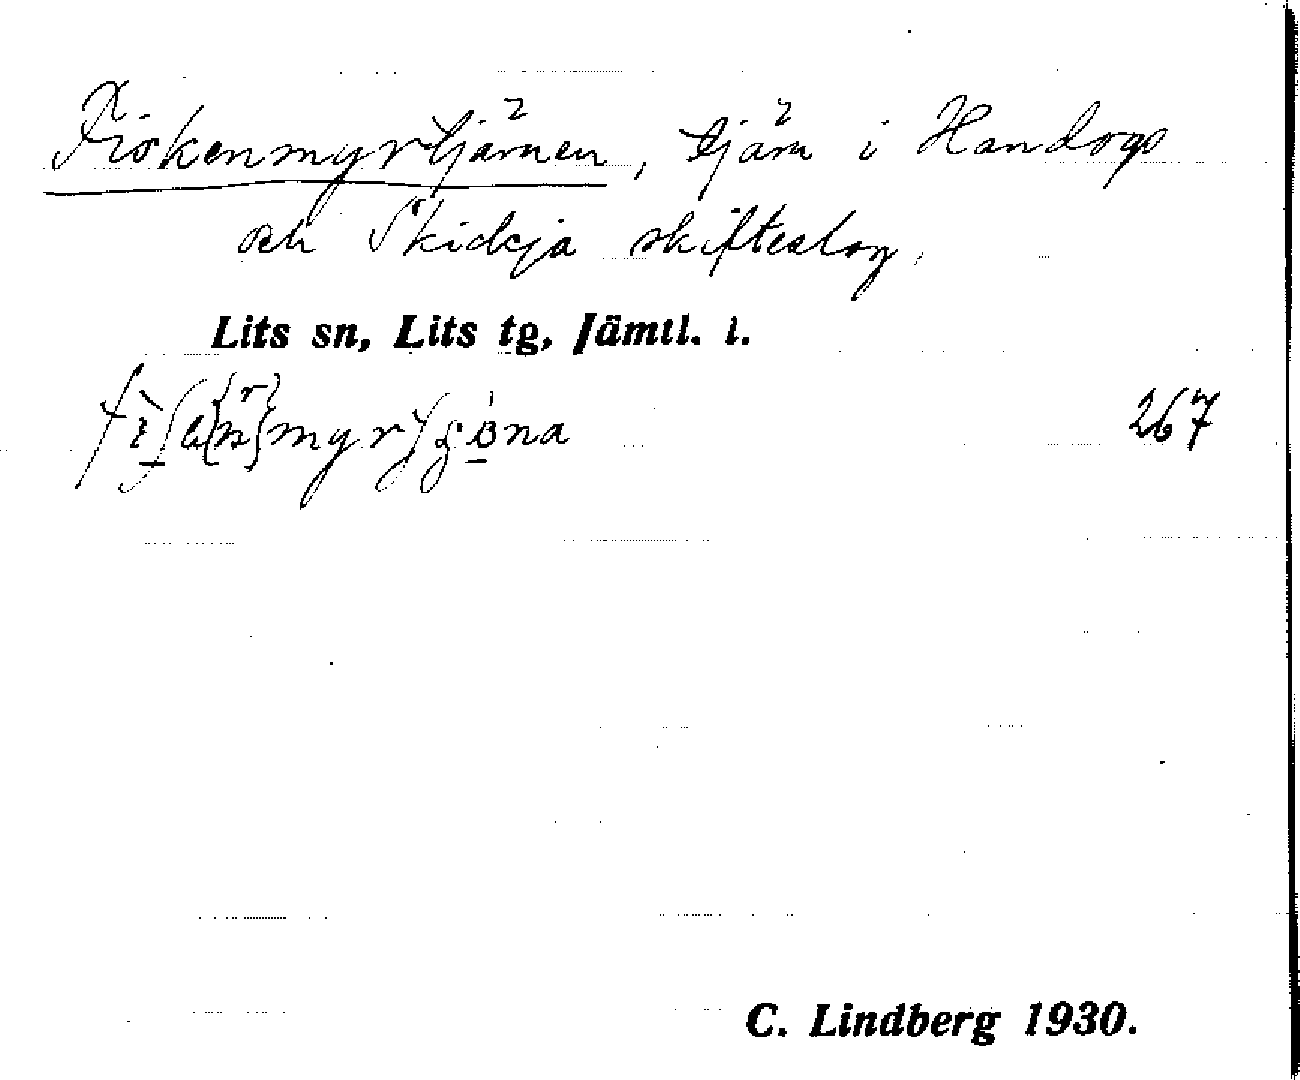 Fiskenmyrtjärnen, tjärn i Handogs
och Skidsja skifteslag.
Lits sn, Lits tg, Jämtl. l.
267
C. Lindberg 1930.